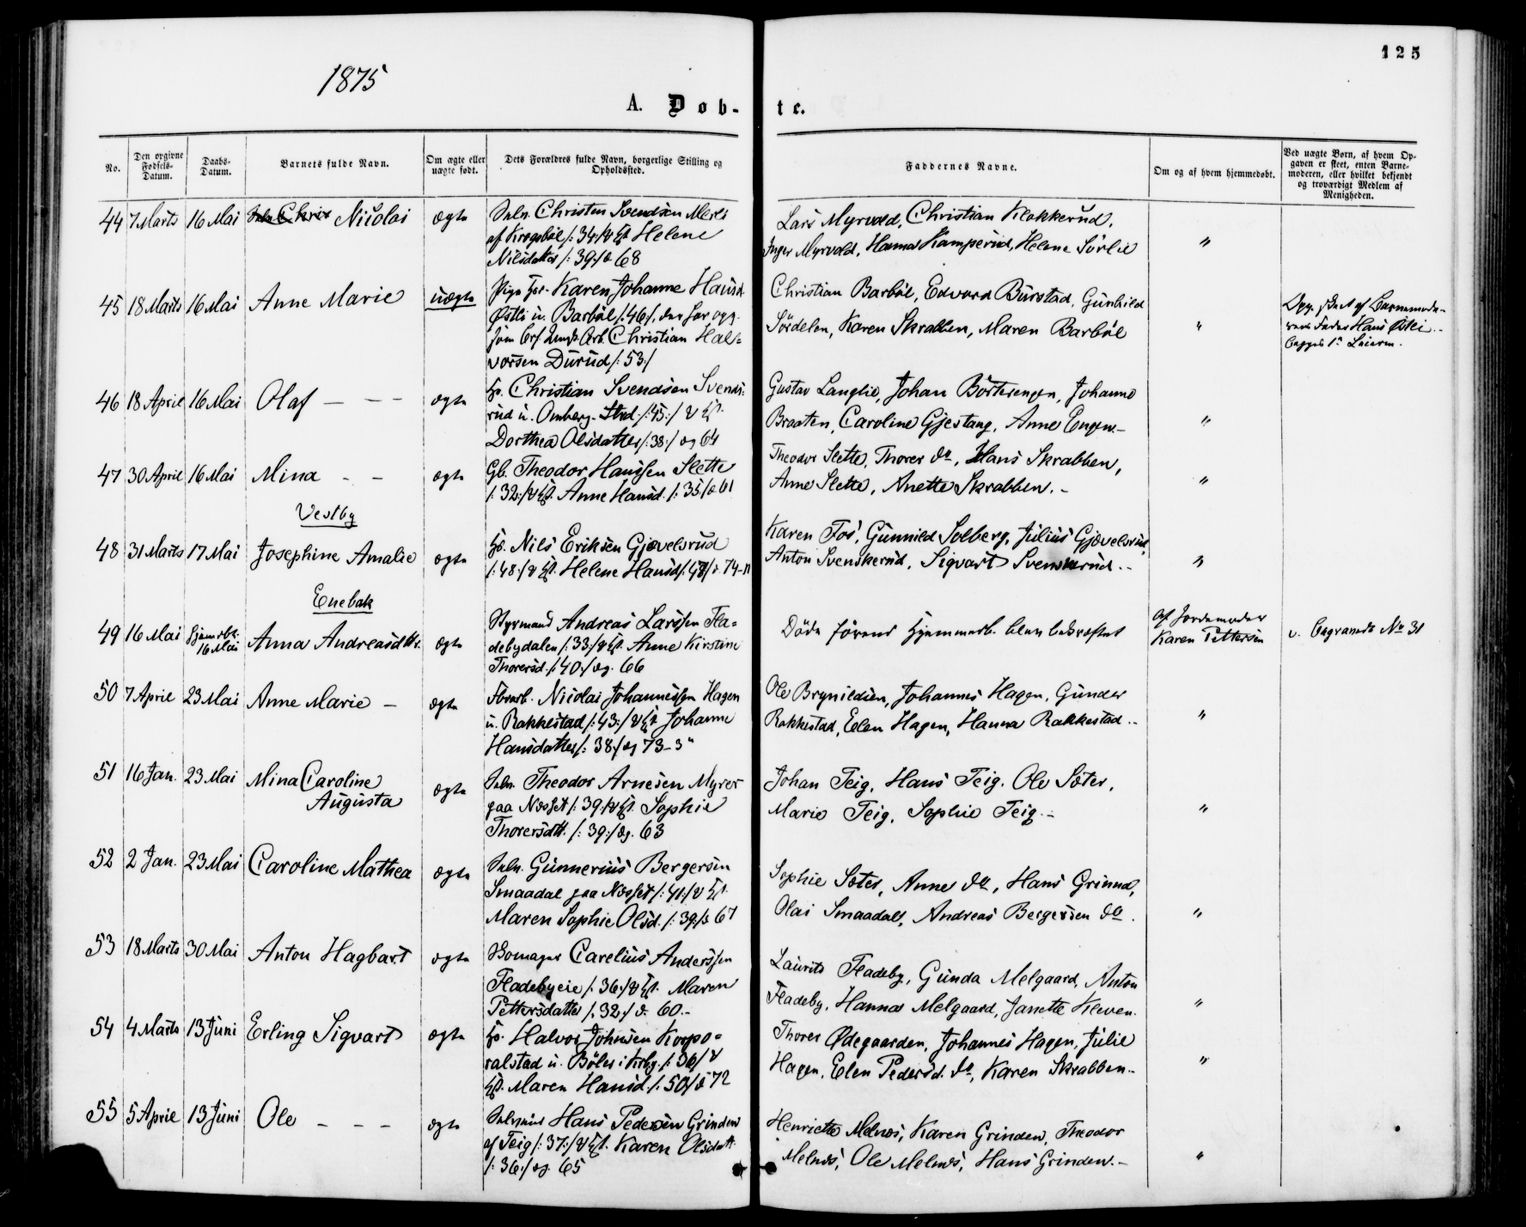 125
1875
A. Døb-
te.
No.
Den opgivne Fødsels-Datum.
Daabs-Datum.
Barnets fulde Navn.
Om ægte eller uægte født.
Dets Forældres fulde Navn, borgerlige Stilling og Opholdssted.
Faddernes Navne.
Om og af hvem hjemmedøbt.
Ved uægte Børn, af hvem Opgaven er skeet, enten Barnemoderen, eller hvilket bekjendt og troværdigt Medlem af Menigheden.
44 7 Marts 16 Mai Nicolai ægte
Selv. Christen Svendsen
af Krogsbøl /: 34:/ & Helene
Nilsdatter /: 39:/ 68
Lars Myrvold, Christian Klokkerud,
Inger Myrvold, Hanna Kamperud, Helene Sørlie
"
45 18 Marts 16 Mai Anne Marie uægte
Pige Karen Johanne Hansd.
Østli u. Barbøl /:46/, der har opg.
som Arb. Christian Hal-
vorsen Durud /: 53/
Christian Barbøl, Edvard Burstad, Gunhild
Sørdelen, Karen Skrabben, Maren Barbøl
"
Hans Østli
46 18 April 16 Mai Olaf - - - ægte
Christian Svendsen Svends-
rud u. Omberg /:45:/ &
Dorthea Olsdatter /:38:/ og 64
Gustav Langlie, Johan Børterengen, Johanne
Braaten, Caroline Gjestang, Anne Engene
"
47 30 April 16 Mai Mina - - ægte
Gb. Theodor Hanssen Slette
/: 32:/ & Anne Hansd. /: 35/ 61
Theodor Slette, Thorer do, Hans Skrabben,
Anne Slette, Anette Skrabben.
"
Vestby
48 31 Marts 17 Mai Josephine Amalie ægte
Nils Eriksen Gjævelsrud
/:48:/ & Helene Hansd /:48/ 74
Karen Fos, Gunnild Solberg, Julius Gjævelsrud,
Anton Svenskerud, Sigvart Svenskerud.
"
Enebak
49 16 Mai Hjemdbt. 16 Mai Anna Andreasdttr. ægte
Styrmand Andreas Larssen Fla-
debydalen /: 33:/ & Anne Kirstine
Thorersd. /:40:/ og 66
Døde førend Hjemmedb. blev bekræftet
af Jordemoder
Karen Pettersen
v. Begravede No 31
50 7 April 23 Mai Anne Marie - ægte
Nicolai Johannessen Hagen
u. Rakkestad /:43:/ & Johanne
Hansdatter /: 38:/ og 73-3
Ole Brynildsen, Johannes Hagen, Gunder
Rakkestad, Elen Hagen, Hanna Rakkestad
"
51 16 Jan. 23 Mai Mina Caroline ægte
Augusta
Selv. Theodor Arnesen Myrer
paa Næsset /: 39:/ & Sophie
Thorersdtt. /: 39:/ og. 63
Johan Teig, Hans Teig, Ole Sæter,
Marie Teig, Sophie Teig.
"
52 2 Jan. 23 Mai Caroline Mathea ægte
Selv. Gunnerius Bergersen
Smaadal paa Næsset /:41:/ &
Maren Sophie Olsd. /: 39:/ 67
Sophie Sæter, Anne do, Hans Grinna,
Olai Smaadal, Andreas Bergersen do.
"
53 18 Marts 30 Mai Anton Hagbart ægte
Skomager Carelius Anderssen
Fladebyeie /: 36:/ & Maren
Pettersdatter /: 32:/ 60.
Laurits Fladeby, Gunda Melgaard, Anton
Fladeby, Hanna Melgaard, Janette Kleven.
"
54 4 Marts 13 Juni Erling Sigvart ægte
Halvor Johnsen Korpo-
ralstad u. Bøler i Krbg. /: 36/ &
Maren Hansd. /: 50/ 72
Thorer Ødegaarden, Johannes Hagen, Julie
Hagen, Elen Pedersd. do, Karen Skrabben
"
55 5 April 13 Juni Ole - - - ægte
Hans Pedersen Grinden
af Teig /: 37:/ & Karen Olsdatt
/: 36:/ og 65
Henriette Melnæs, Karen Grinden, Theodor
Melnæs, Ole Melnæs, Hans Grinden.
"